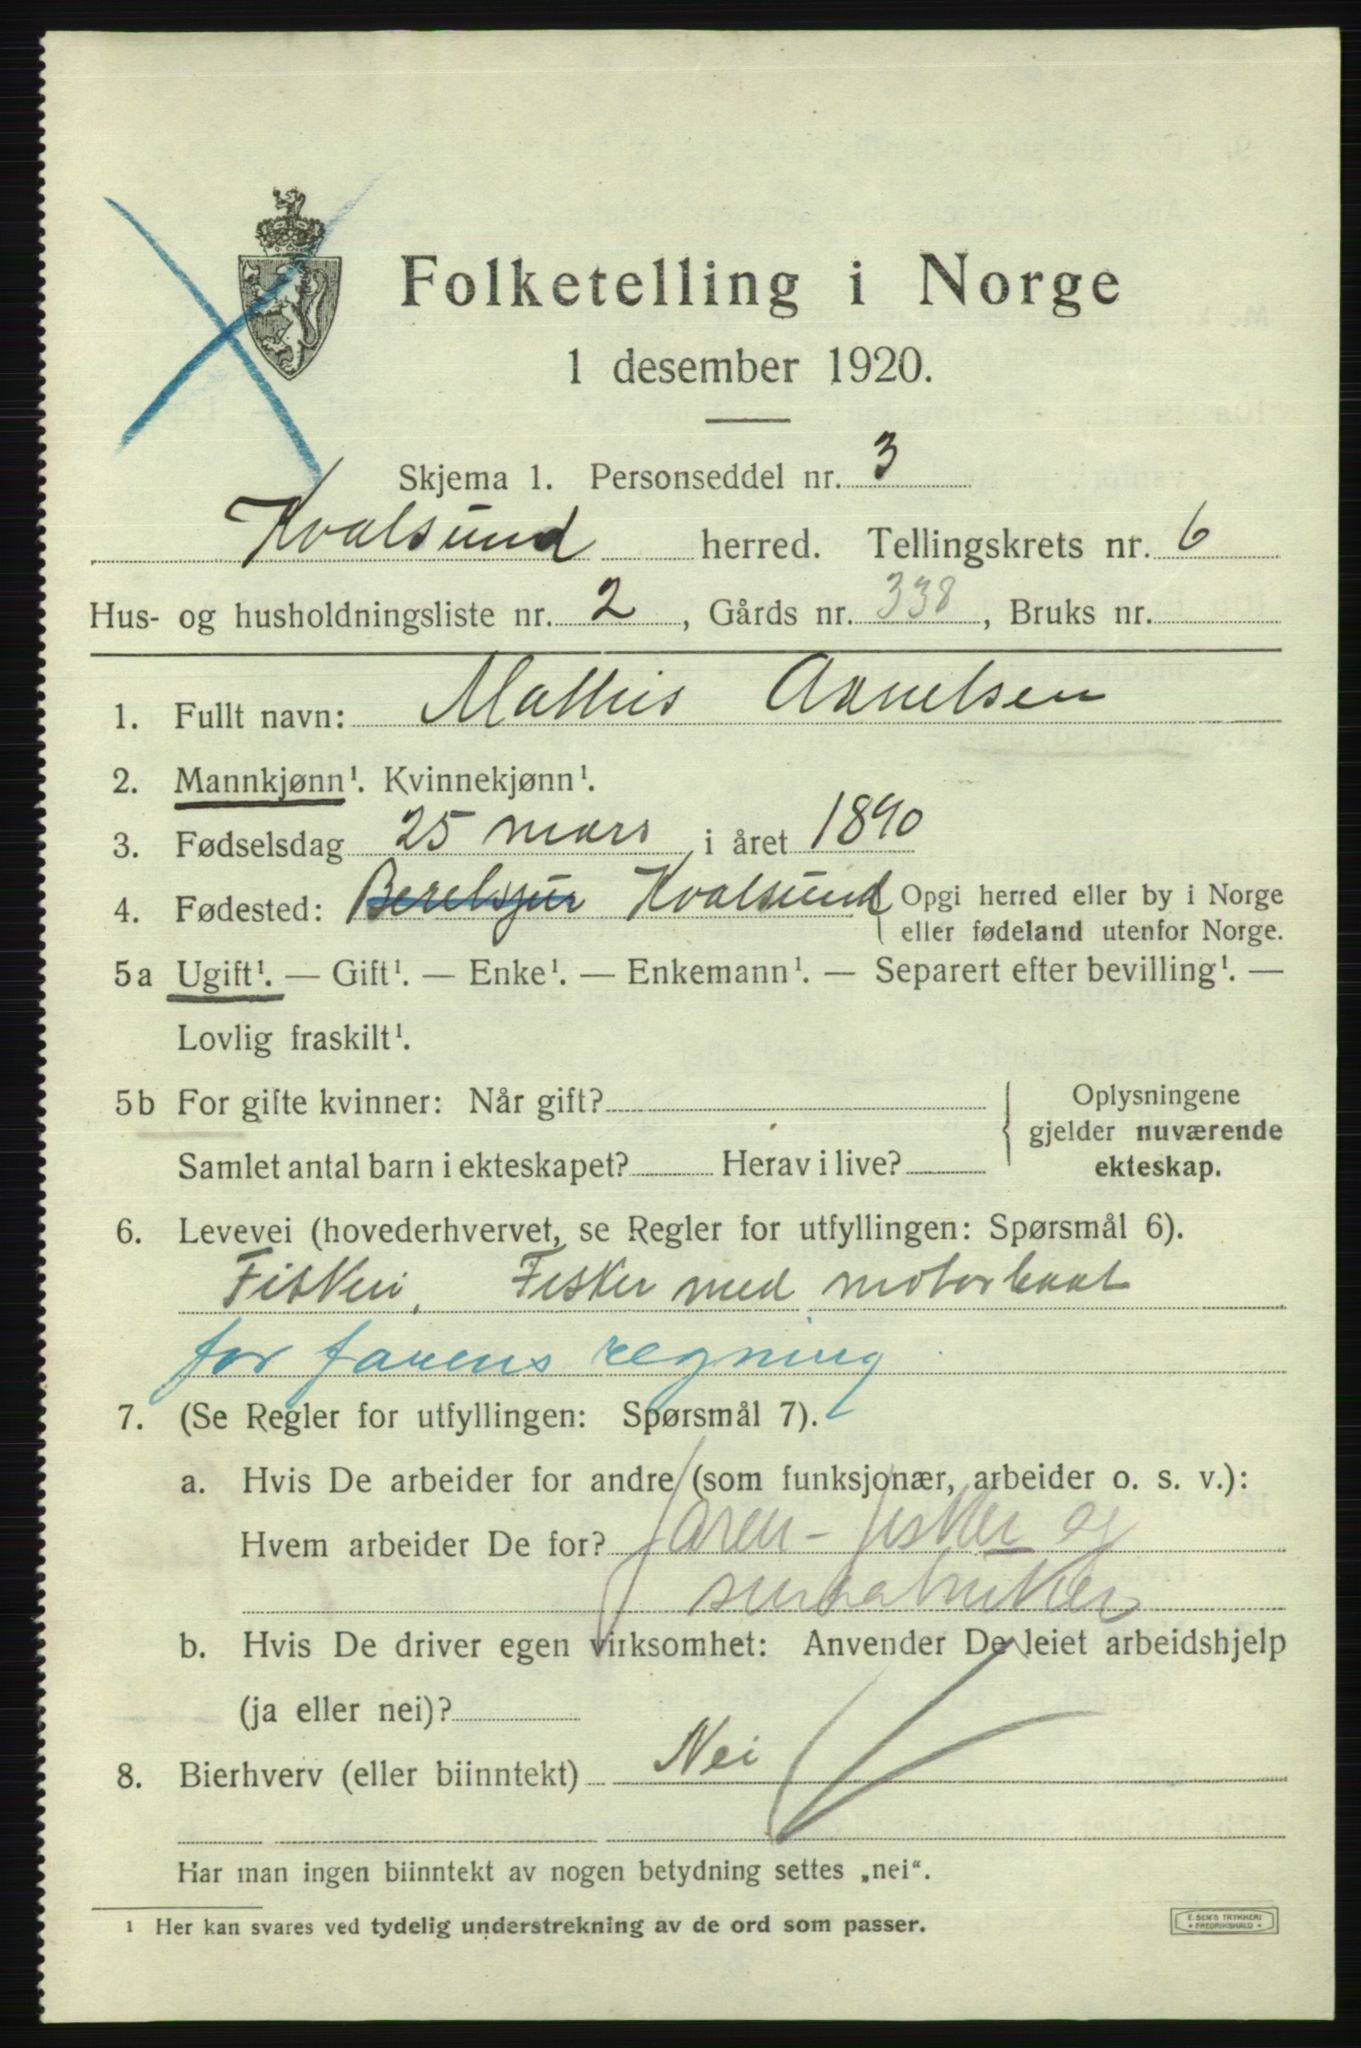 Folketelling i Norge
1 desember 1920.
Skjema 1. Personseddel nr. 3
Kvalsund herred. Tellingskrets nr. 6
Hus- og husholdningsliste nr. 2, Gårds nr. 338, Bruks nr.
1. Fullt navn: Mathis
2. Mannkjønn¹. Kvinnekjønn¹.
3. Fødselsdag 25 mars i året 1890
4. Fødested: Kvalsund Opgi herred eller by i Norge
eller fødeland utenfor Norge.
5a Ugift¹. — Gift¹. — Enke¹. — Enkemann¹. — Separert efter bevilling¹. —
Lovlig fraskilt¹.
5b For gifte kvinner: Når gift?
Samlet antal barn i ekteskapet? Herav i live?
Oplysningene
gjelder nuværende
ekteskap.
6. Levevei (hovederhvervet, se Regler for utfyllingen: Spørsmål 6).
Fiskeri, Fisker med motorbaat
for farens regning
7. (Se Regler for utfyllingen: Spørsmål 7).
a. Hvis De arbeider for andre (som funksjonær, arbeider o. s. v.):
Hvem arbeider De for? faren - fisker og
smaabruker
b. Hvis De driver egen virksomhet: Anvender De leiet arbeidshjelp
(ja eller nei)?
8. Bierhverv (eller biinntekt) Nei
Har man ingen biinntekt av nogen betydning settes „nei“.
¹ Her kan svares ved tydelig understrekning av de ord som passer.
E. SEM'S TRYKKERI
FREDRIKSHALD